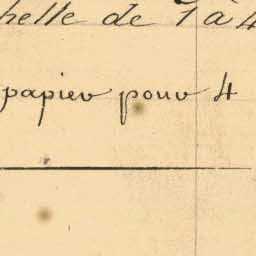 helle de 1 à 4
papier pour 4